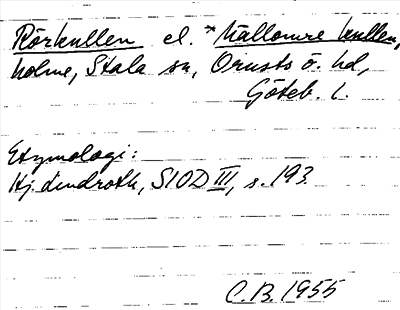 Rörkullen el. *Mållomre kullen,
holme, Stala sn, Orusts ö. hd,
Göteb. l.
Etymologi:
Hj. Lindroth, SIOD III, s. 193.
C.B. 1955